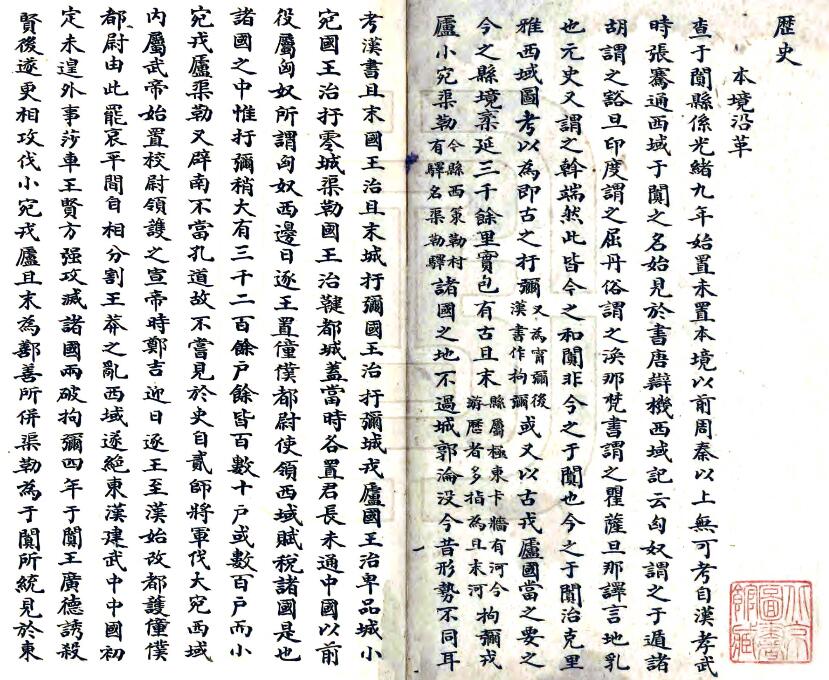 歷史
本境沿革
查于闐縣係光緒九年始置未置本境以前周秦以上無可考自漢孝武
時張騫通西域于闐之名始見於書唐辯機西域記云匈奴謂之于遁諸
胡謂之谿旦印度謂之屈丹俗謂之渙那梵書謂之瞿薩旦那譯言地乳
也元史又謂之斡端然此皆今之和闐非今之于闐也今之于闐治克里
雅西域圖考以為即古之扜彌又為甯彌後漢書作拘彌或又以古戎盧國當之要之
今之縣境袤延三千餘里實包有古且末縣屬極東卡牆有河今游歷者多指為且末河拘彌戎
盧小宛渠勒今縣西策勒村有驛名渠勒驛諸國之地不過城郭淪没今昔形勢不同耳
一
考漢書且末國王治且末城扜彌國王治扜彌城戎盧國王治卑品城小
宛國王治扜零城渠勒國王治鞬都城蓋當時各置君長未通中國以前
役屬匈奴所謂匈奴西邊日逐王置僮僕都尉使領西域賦稅諸國是也
諸國之中惟扜彌稍大有三千二百餘戶餘皆百數十戶或數百戶而小
宛戎盧渠勒又辟南不當孔道故不嘗見於史自貳師將軍伐大宛西域
內屬武帝始置校尉領護之宣帝時鄭吉迎日逐王至漢始改都護僮僕
都尉由此罷哀平間自相分割王莽之亂西域遂絕東漢建武中中國初
定未遑外事莎車王賢方强攻滅諸國兩破拘彌四年于闐王廣德誘殺
賢後遂更相攻伐小宛戎盧且末為鄯善所併渠勒為于闐所統見於東